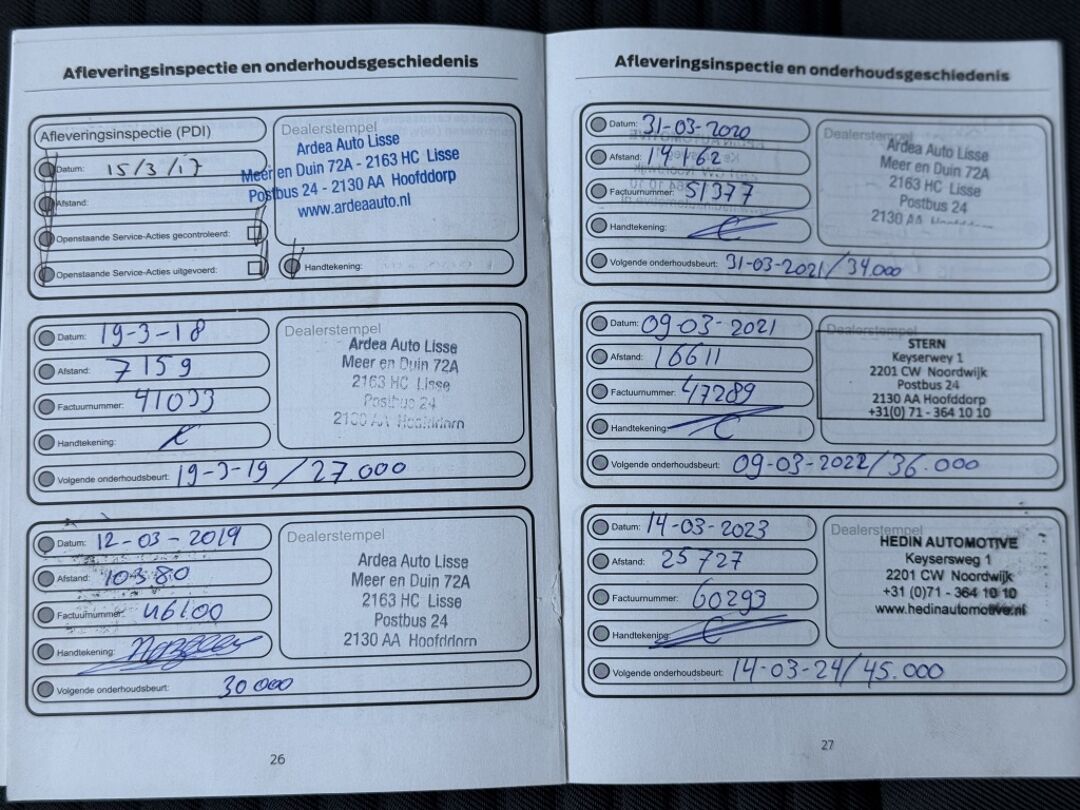 Afleveringsinspectie en onderhoudsgeschiedenis
Afleveringsinspectie (PDI)
Datum: 15/3/17
Afstand:
Openstaande Service-Acties gecontroleerd:
Openstaande Service-Acties uitgevoerd:
Dealerstempel
Ardea Auto Lisse
Meer en Duin 72A - 2163 HC Lisse
Postbus 24 - 2130 AA Hoofddorp
www.ardeaauto.nl
Handtekening:
Datum: 19-3-18
Afstand: 7159
Factuurnummer: 41033
Handtekening:
Dealerstempel
Ardea Auto Lisse
Meer en Duin 72A
2163 HC Lisse
Postbus 24
2130 AA Hoofddorp
Volgende onderhoudsbeurt: 19-3-19 / 27.000
Datum: 12-03-2019
Afstand: 10380
Factuurnummer: 46100
Handtekening:
Dealerstempel
Ardea Auto Lisse
Meer en Duin 72A
2163 HC Lisse
Postbus 24
2130 AA Hoofddorp
Volgende onderhoudsbeurt: 30 000
26
Afleveringsinspectie en onderhoudsgeschiedenis
Datum: 31-03-2020
Afstand: 14162
Factuurnummer: 51377
Handtekening:
Dealerstempel
Ardea Auto Lisse
Meer en Duin 72A
2163 HC Lisse
Postbus 24
2130 AA Hoofddorp
Volgende onderhoudsbeurt: 31-03-2021/34.000
Datum: 09-03-2021
Afstand: 16611
Factuurnummer: 47289
Handtekening:
Dealerstempel
STERN
Keyserweg 1
2201 CW Noordwijk
Postbus 24
2130 AA Hoofddorp
+31(0) 71 - 364 10 10
Volgende onderhoudsbeurt: 09-03-2022/36.000
Datum: 14-03-2023
Afstand: 25727
Factuurnummer: 60293
Handtekening:
Dealerstempel
HEDIN AUTOMOTIVE
Keysersweg 1
2201 CW Noordwijk
+31 (0)71 - 364 10 10
www.hedinautomotive.nl
Volgende onderhoudsbeurt: 14-03-24/45.000
27